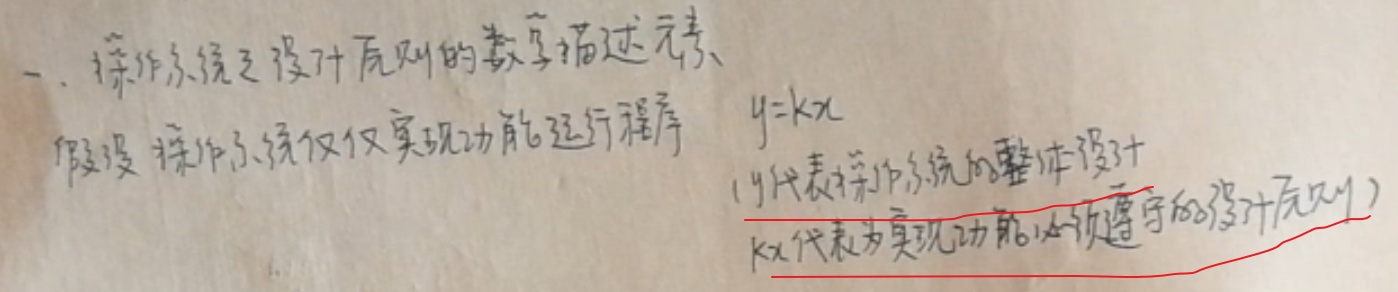 一、操作系统之设计原则的数学描述元素、
假设操作系统仅仅实现功能运行程序
y=kx
(y代表操作系统的整体设计
kx代表为实现功能必须遵守的设计原则)